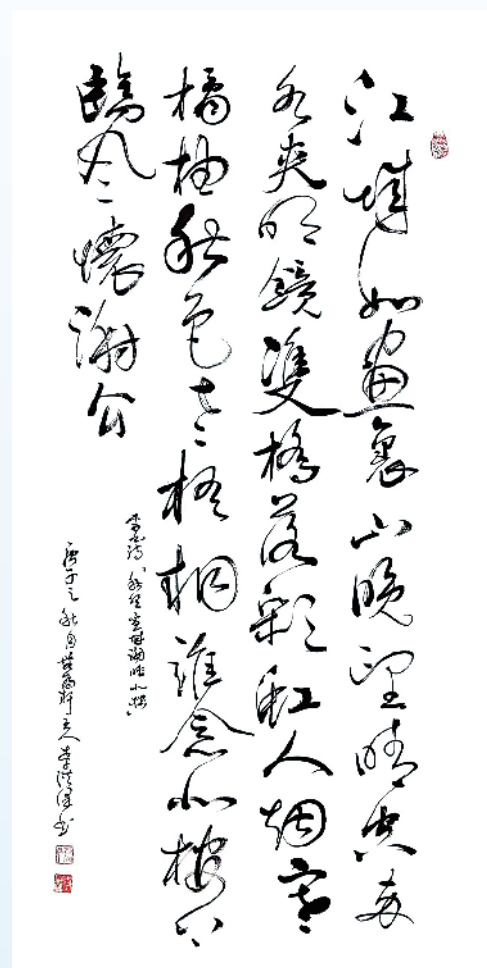 江城如畫裏山晚望晴空兩
水夾明鏡雙橋落彩虹人烟寒
橘柚秋色老梧桐誰念北樓上
臨風懷謝公
李白詩《秋登宣城謝朓北樓》
庚子之秋月主人李洪书